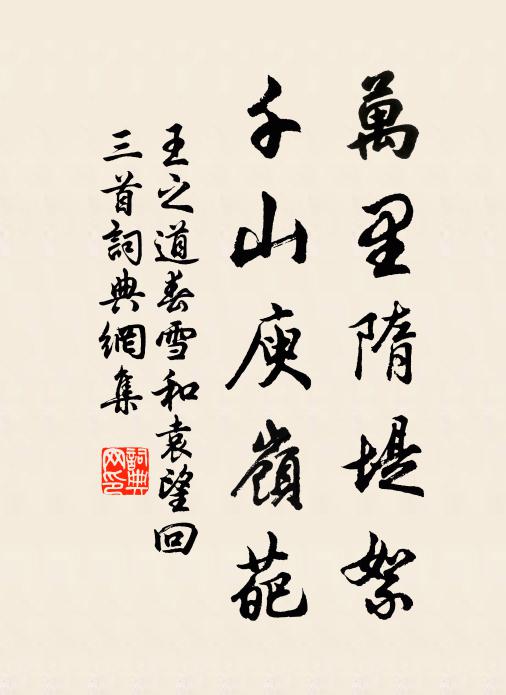 萬里隋堤絮
千山庾嶺葩
王之道春雪和袁望回
三首詞典網集
詞典网印